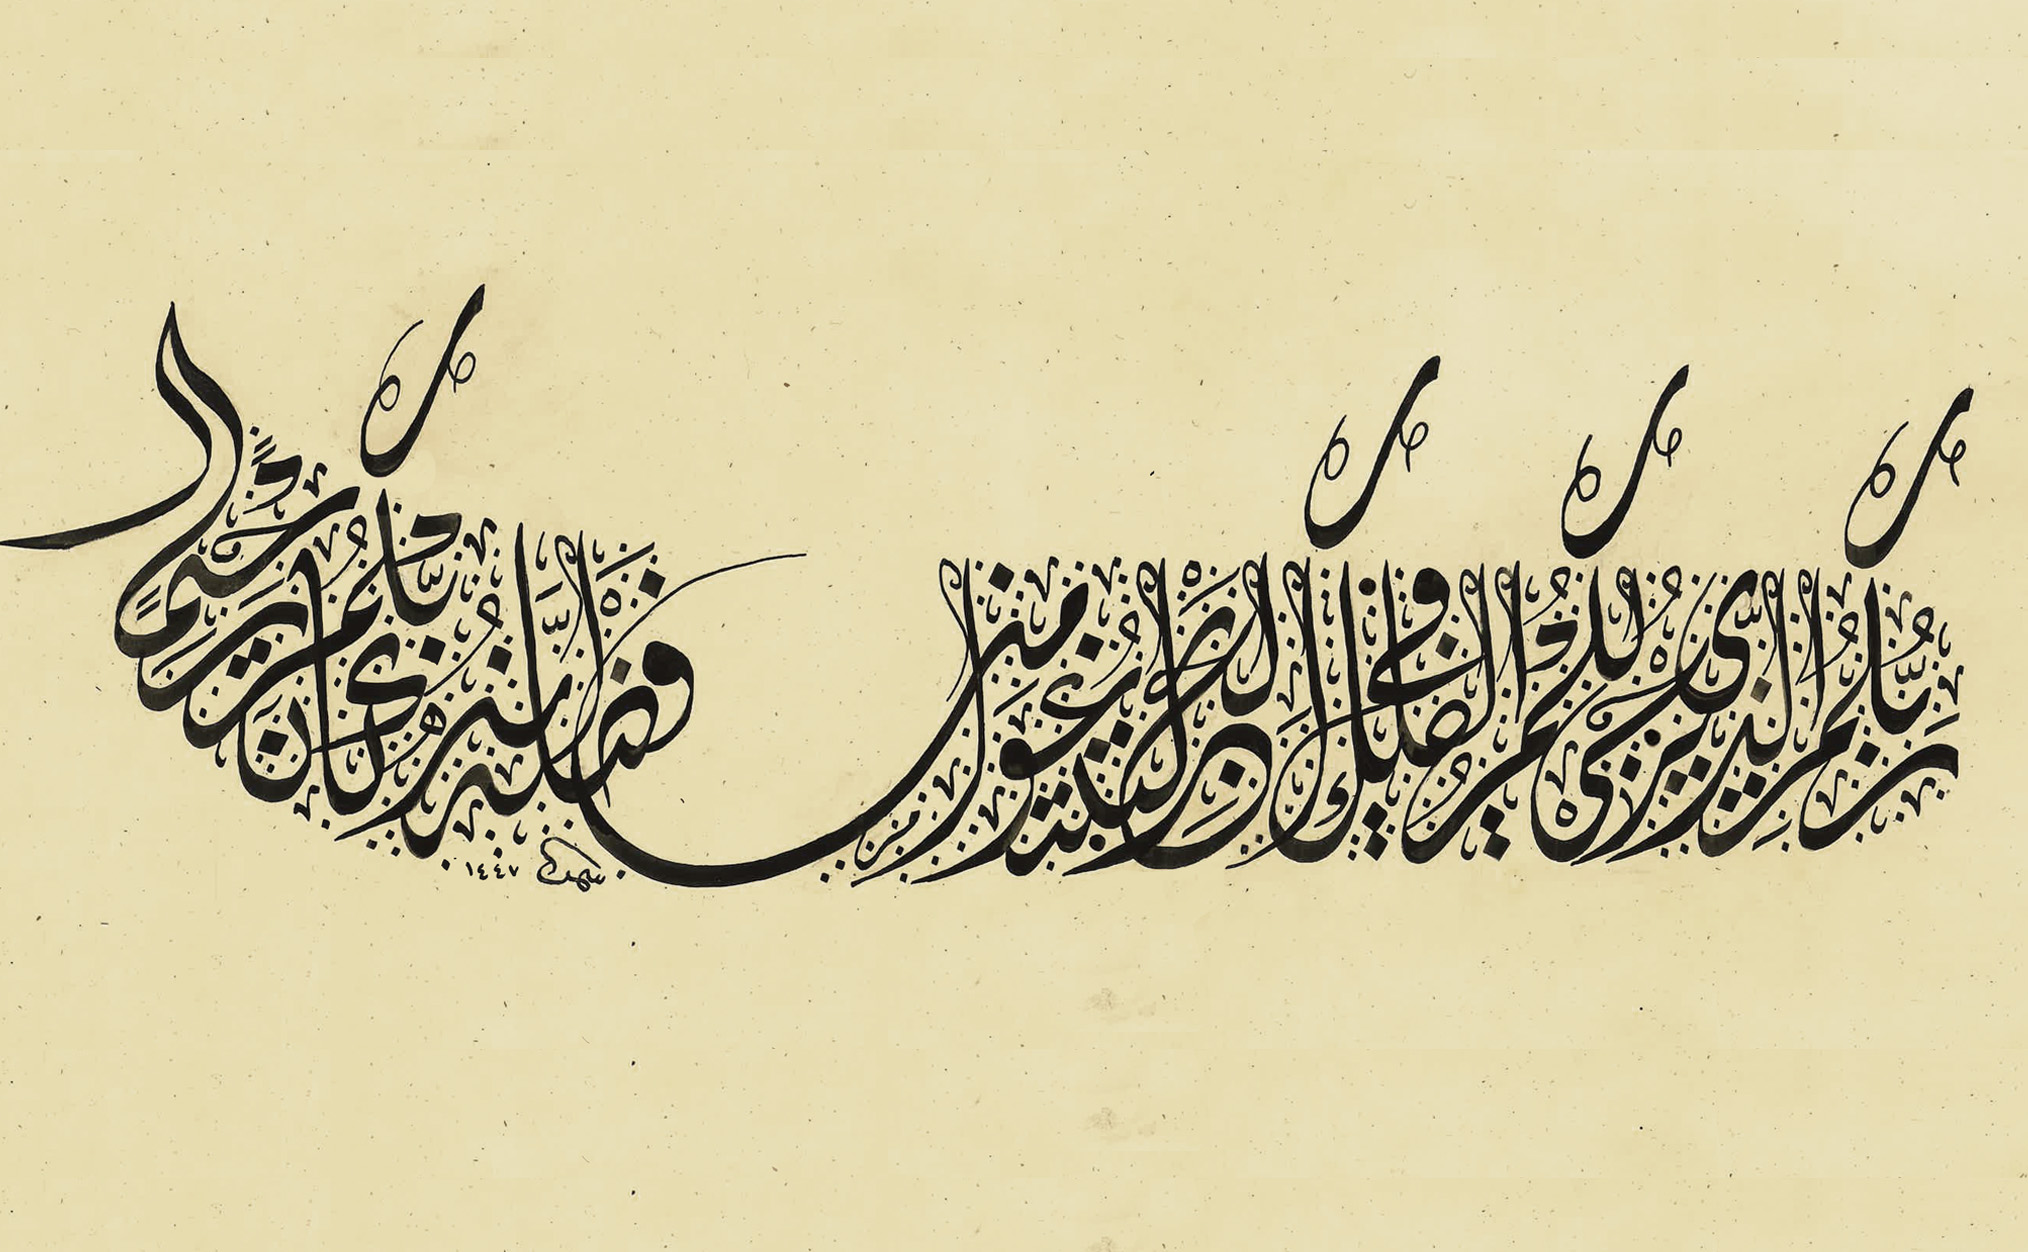 رَبُّكُمُ الَّذِي يُزْجِي لَكُمُ الْفُلْكَ فِي الْبَحْرِ لِتَبْتَغُوا مِنْ فَضْلِهِ إِنَّهُ كَانَ بِكُمْ رَحِيمًا
١٤٤٧